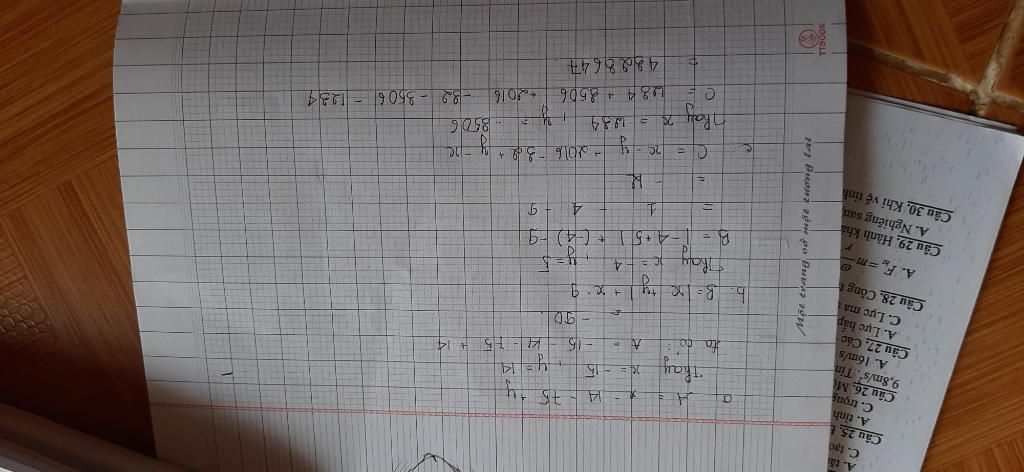 a. A = x - 14 - 75 + y
Thay x = - 15 , y = 14
ta có: A = - 15 - 14 - 75 + 14
= - 90.
b. B = | x + y | + x - 9
Thay x = - 4 , y = 5
B = | - 4 + 5 | + (- 4) - 9
= 1 - 4 - 9
c. C = x - y + 2016 - 32 + y - x
Thay x = 1234 , y = - 3506
C = 1234 + 3506 + 2016 - 32 - 3506 - 1234
Một trang vở một tương lai
TTBOOK
Câu 25.
C. trọng
Câu 26.
9,8m/s
A. 16m/s
Câu 27. Các
A. Lực hấp
C. Lực ma
Câu 28. Công
Câu 29. Hành khá
A. Nghiêng san
Câu 30. Khi vệ tinh